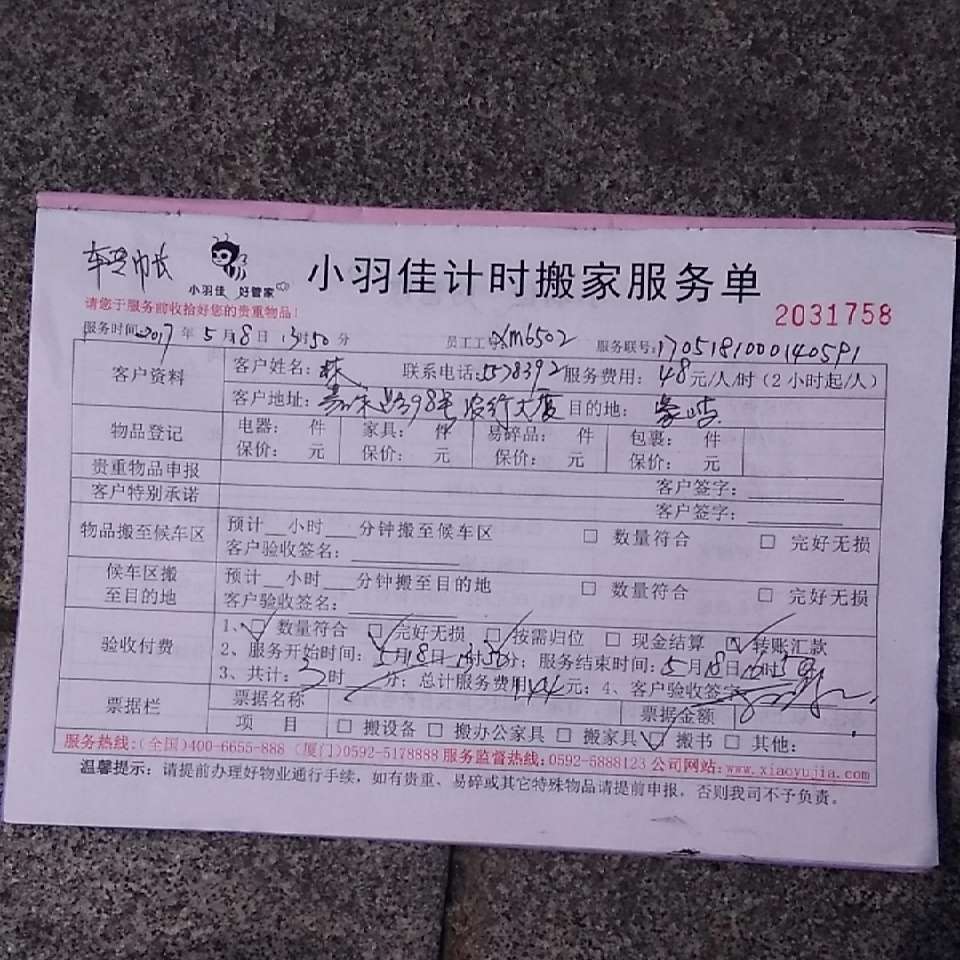 小羽佳 好管家
小羽佳计时搬家服务单
请您于服务前收拾好您的贵重物品！
2031758
服务时间 2017 年 5 月 18 日 13 时 50 分 员工工号 XM6502 服务联号: 170518100014059
客户资料 客户姓名: 林 联系电话: 5578392 服务费用: 48 元/人/时（2小时起/人）
客户地址: 398号 农行大厦 目的地:
物品登记 电器: 件 家具: 件 易碎品: 件 包裹: 件
保价: 元 保价: 元 保价: 元 保价: 元
贵重物品申报 客户签字:
客户特别承诺 客户签字:
物品搬至候车区 预计__小时___分钟搬至候车区 □ 数量符合 □ 完好无损
客户验收签名:
候车区搬至目的地 预计__小时___分钟搬至目的地 □ 数量符合 □ 完好无损
客户验收签名:
验收付费 1、□ 数量符合 □ 完好无损 □ 按需归位 □ 现金结算 □ 转账汇款
2、服务开始时间: 5月18日13时50分；服务结束时间: 5月18日
3、共计: 3 时 分；总计服务费用 144 元；4、客户验收签字
票据栏 票据名称 票据金额
项 目 □ 搬设备 □ 搬办公家具 □ 搬家具 □ 搬书 □ 其他:
服务热线:（全国）400-6655-888（厦门）0592-5178888 服务监督热线:0592-5888123 公司网站: www.xiaoyujia.com
温馨提示: 请提前办理好物业通行手续，如有贵重、易碎或其它特殊物品请提前申报，否则我司不予负责。